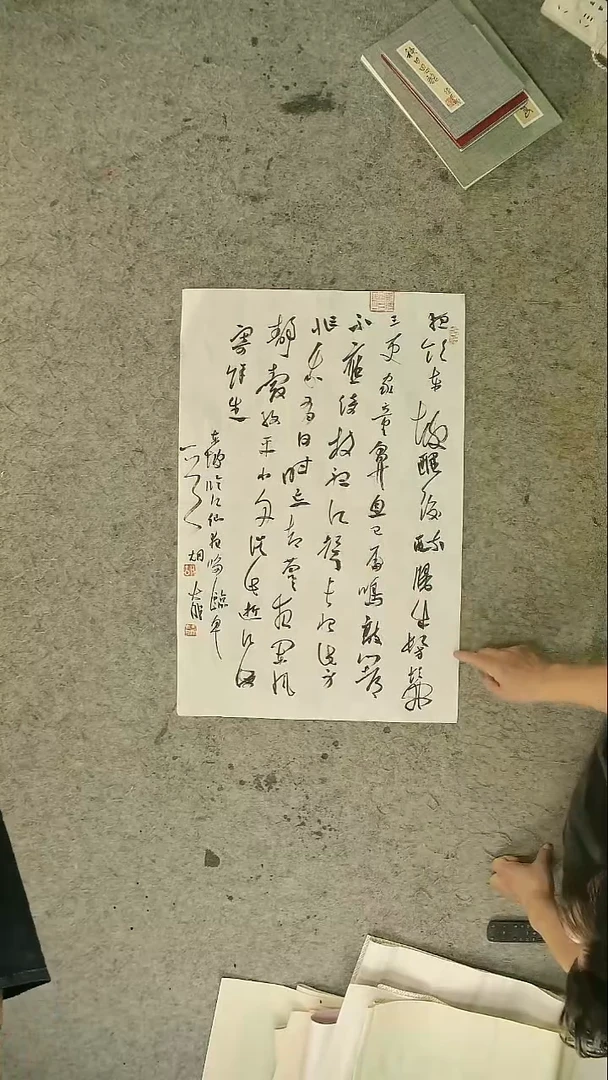 夜飲東坡醒復醉歸來彷彿
三更家童鼻息已雷鳴敲門都
不應倚杖聽江聲長恨此身
非我有何時忘却營營夜闌風
靜縠紋平小舟從此逝江海
寄餘生
東坡臨江仙夜歸臨皋